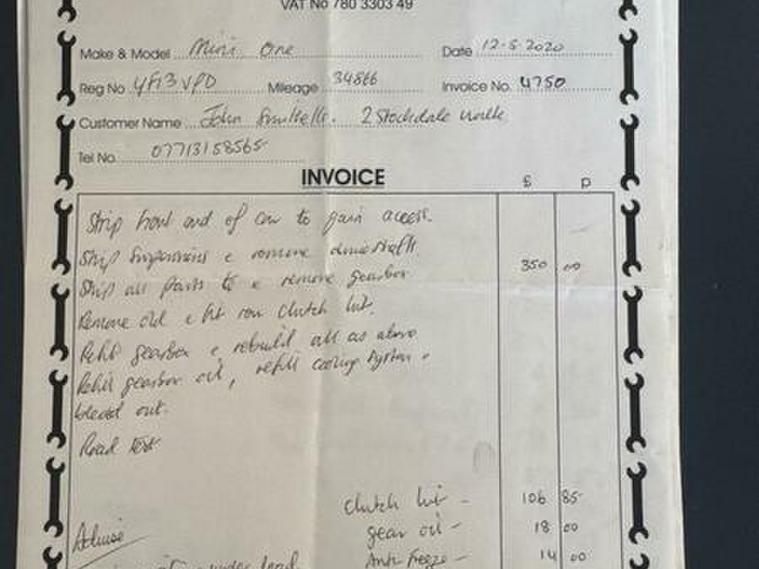 VAT No 780 3303 49
Make & Model Mini One Date 12-5-2020
Reg No YF13VPD Mileage 34866 Invoice No. 4750
Customer Name John 2 Stockdale Walk
Tel No. 07713158565
INVOICE
£ p
Strip front end of car to gain access.
Strip suspension & remove driveshaft 350 00
Strip all parts to & remove gearbox
Remove old & fit new clutch kit.
Refit gearbox & rebuild all as above
Refill gearbox oil, refill cooling system &
bleed out.
Road test
clutch kit - 106 85
gear oil - 18 00
Advise
Anti-freeze - 14 00
under